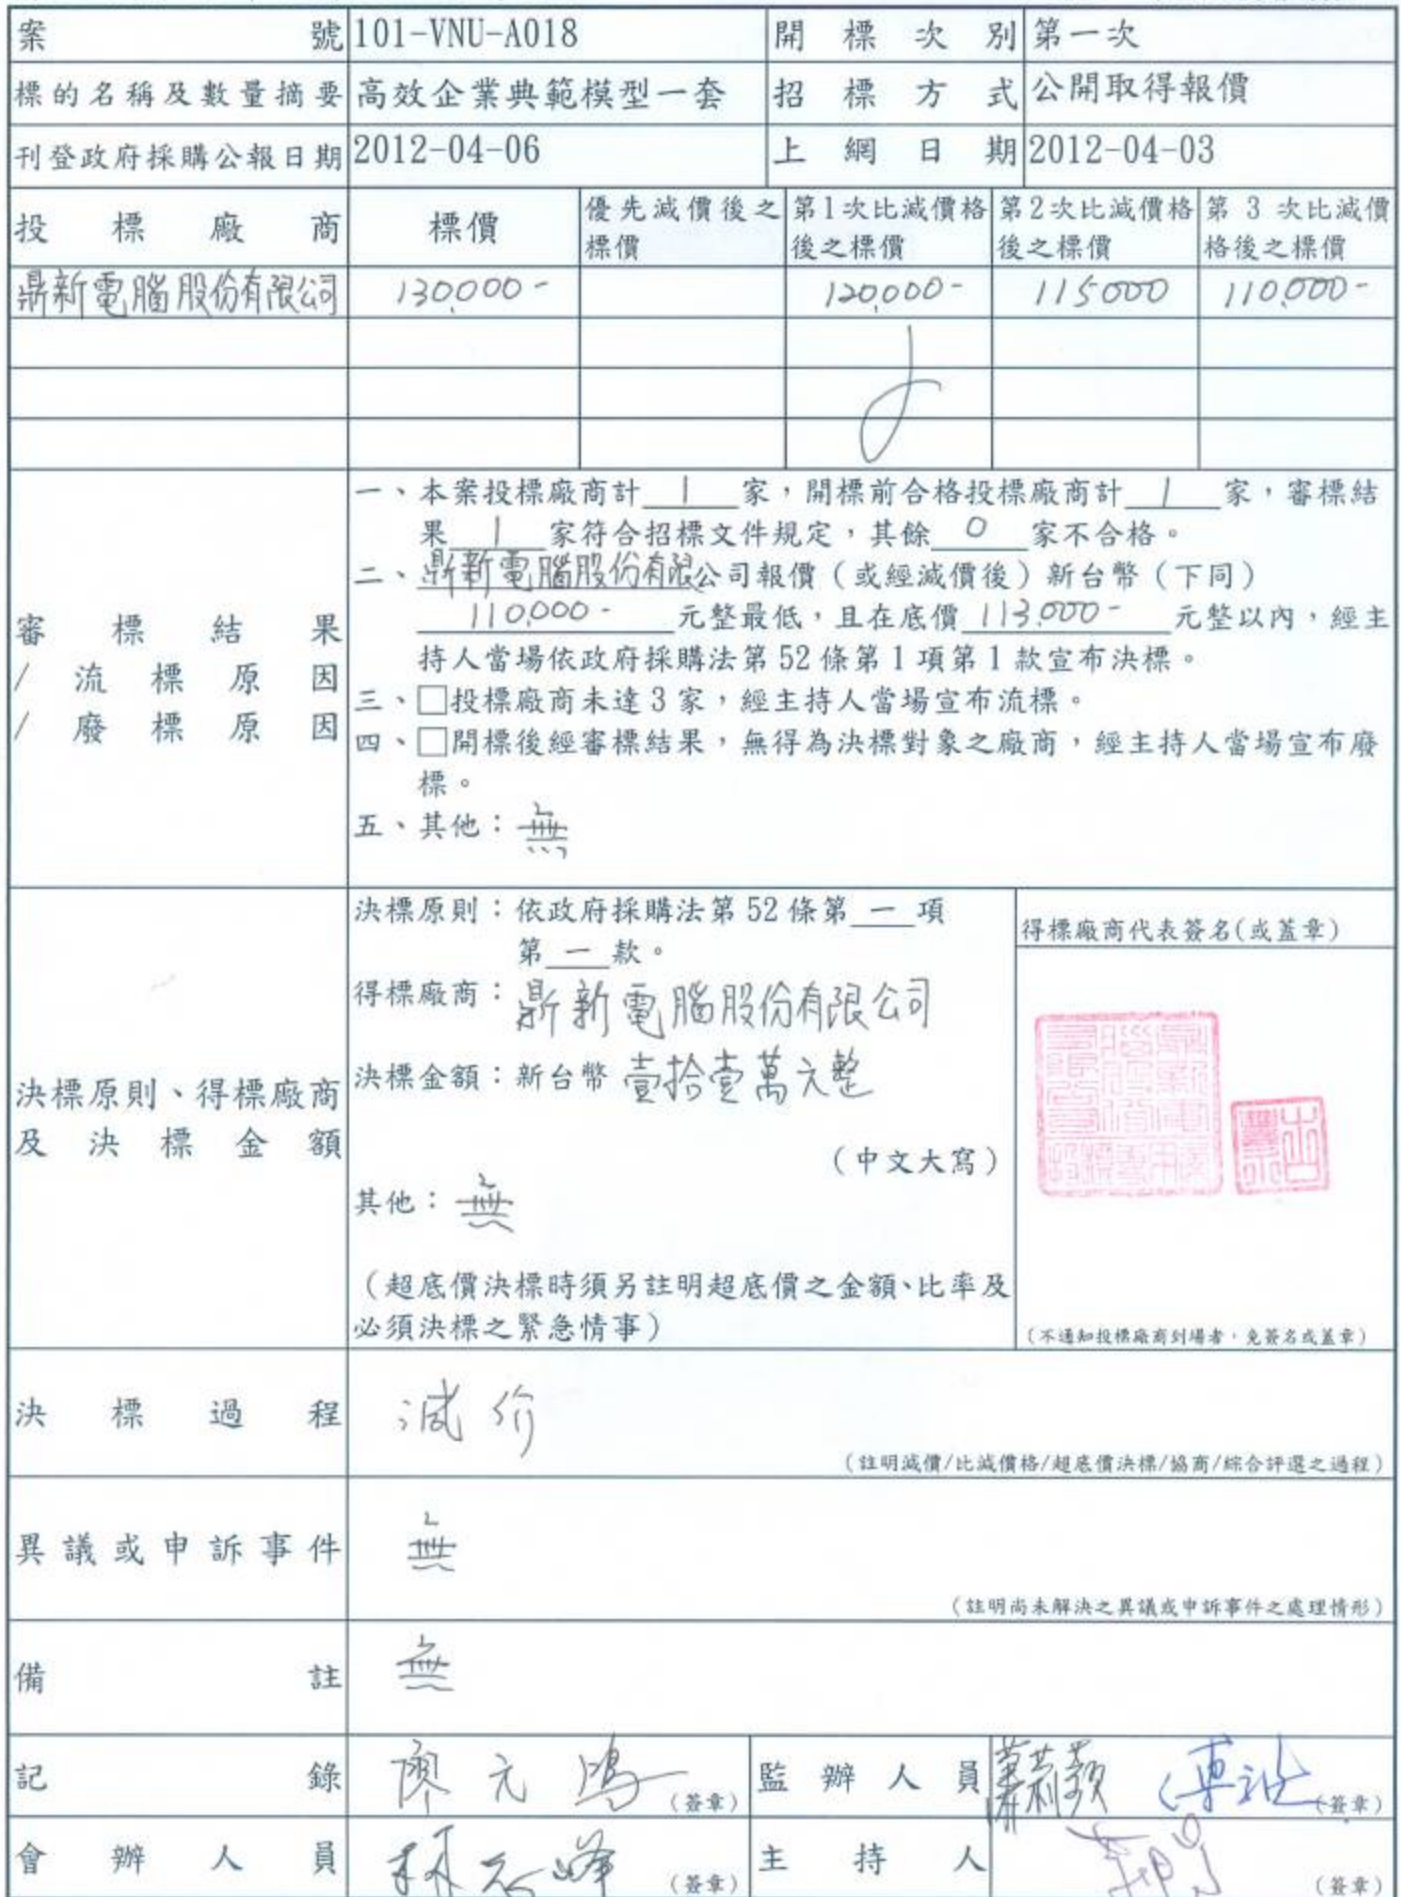 案號 101-VNU-A018 開標次別 第一次
標的名稱及數量摘要 高效企業典範模型一套 招標方式 公開取得報價
刊登政府採購公報日期 2012-04-06 上網日期 2012-04-03
投標廠商 標價 優先減價後之標價 第1次比減價格後之標價 第2次比減價格後之標價 第3次比減價格後之標價
鼎新電腦股份有限公司 130,000- 120,000- 115000 110,000-
審標結果
/流標原因
/廢標原因
一、本案投標廠商計 1 家,開標前合格投標廠商計 1 家,審標結
果 1 家符合招標文件規定,其餘 0 家不合格。
二、鼎新電腦股份有限公司報價(或經減價後)新台幣(下同)
110,000- 元整最低,且在底價 113,000- 元整以內,經主
持人當場依政府採購法第52條第1項第1款宣布決標。
三、□投標廠商未達3家,經主持人當場宣布流標。
四、□開標後經審標結果,無得為決標對象之廠商,經主持人當場宣布廢
標。
五、其他:無
決標原則、得標廠商
及決標金額
決標原則:依政府採購法第52條第 一 項
第 一 款。
得標廠商:鼎新電腦股份有限公司
決標金額:新台幣 壹拾壹萬元整
(中文大寫)
其他:無
(超底價決標時須另註明超底價之金額、比率及
必須決標之緊急情事)
得標廠商代表簽名(或蓋章)
(不通知投標廠商到場者,免簽名或蓋章)
決標過程 減价
(註明減價/比減價格/超底價決標/協商/綜合評選之過程)
異議或申訴事件 無
(註明尚未解決之異議或申訴事件之處理情形)
備註 無
記錄 廖元鴻 (簽章) 監辦人員 (簽章)
會辦人員 林志峰 (簽章) 主持人 (簽章)